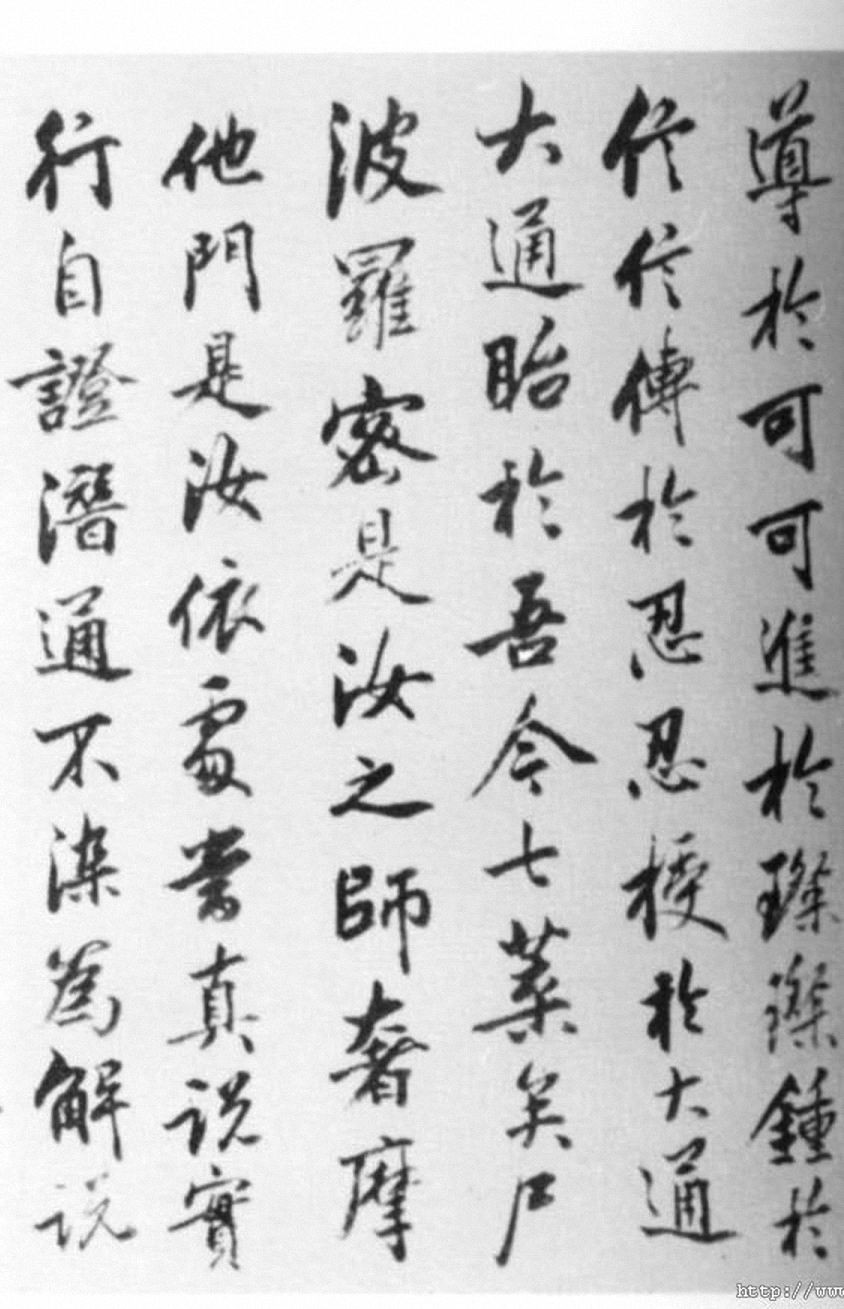 導於可可進於璨璨鍾於
信信傳於忍忍授於大通
大通貽於吾今七葉矣尸
波羅密是汝之師奢摩
他門是汝依處當真説實
行自證潛通不染為解説
http://ww